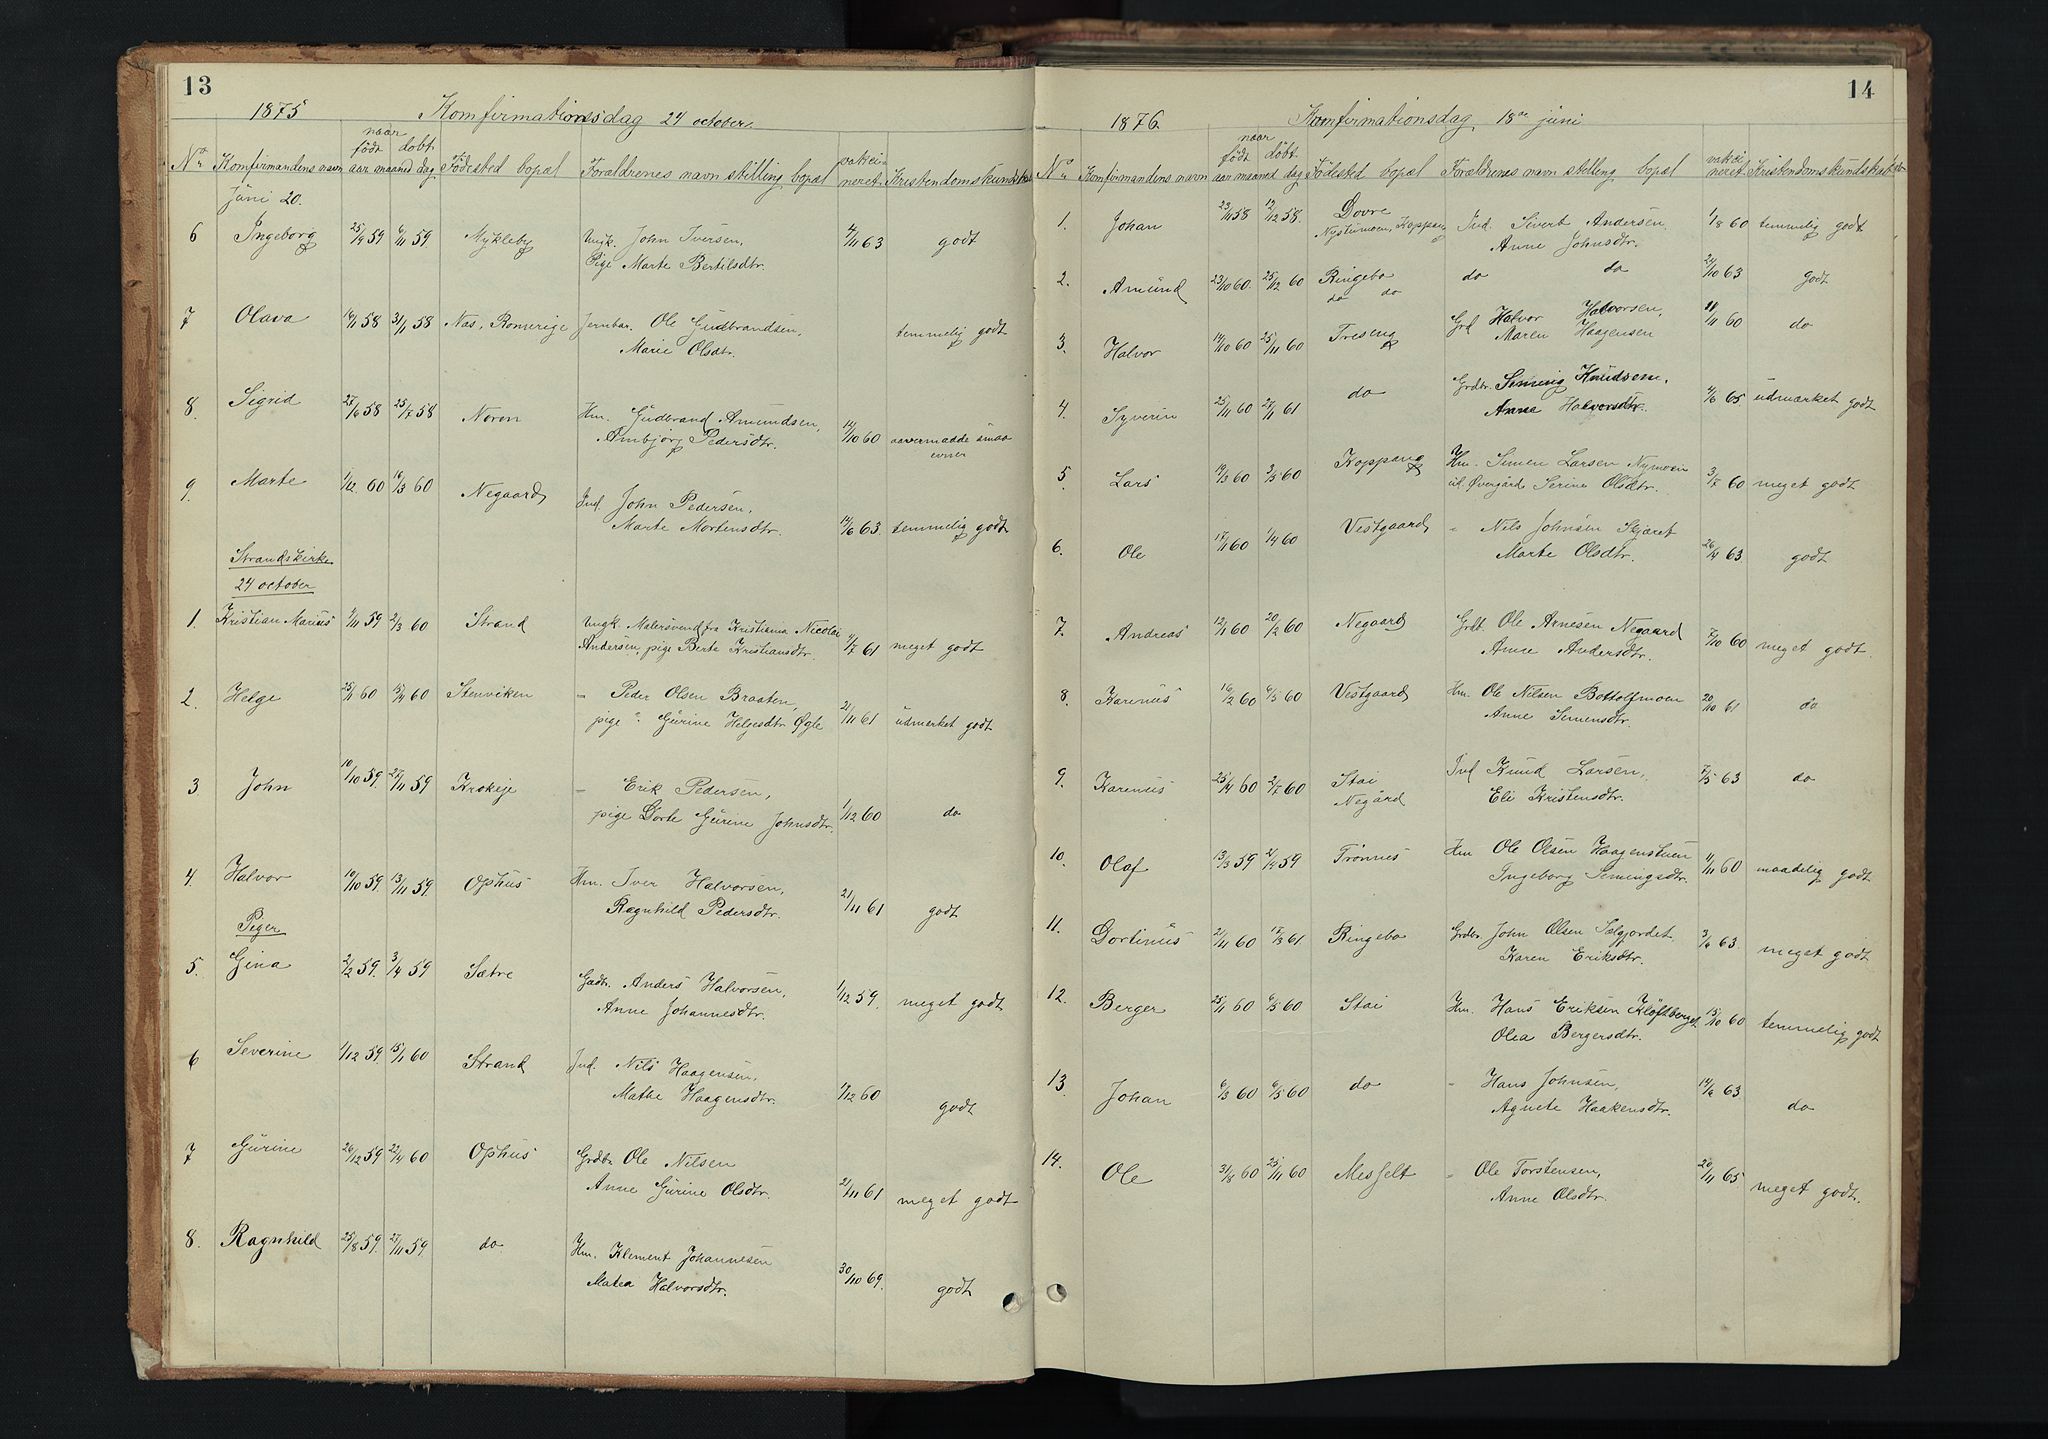 13
1875 Komfirmationsdag 24 october.
naar
født døbt
No. Komfirmandens navn aar maaned dag Fødested bopæl Forældrenes navn stilling bopæl vakcineret Kristendomskundskab
Juni 20.
6 Ingeborg 25/9 59 6/11 59 Mykleby Ungk. John Iversen, 4/11 63 godt
Pige Marte Bertilsdtr.
7 Olava 58 58 Nas, Romerige Jernbar. Ole Gudbrandsen, temmelig godt
Marie Olsdtr.
8. Sigrid 27/6 58 25/7 58 Noren Hm. Gudbrand Amundsen, 14/10 60 aavermadde smaa evner
Ambjørg Pedersdtr.
9. Marte 1/12 60 18/3 60 Negaard Ind. John Pedersen, 14/6 63 temmelig godt
Marte Mortensdtr.
Strandskirke
24 october
1. Kristian Marius 9/11 59 2/3 60 Strand Ungk. Malersvend fra Kristiania Nicolai 4/7 61 meget godt
Andersen, pige Berte Kristiansdtr.
2. Helge 25/1 60 60 Stenviken - Peder Olsen Braaten, 21/11 61 üdmerket godt
pige Gurine Helgesdtr. Øgle
3 John 10/10 59. 27/11 59 Krokeje - Erik Pedersen, 1/12 60 do
pige Dorte Gurine Johnsdtr.
4. Halvor 19/10 59. 13/11 59. Ophus Hm. Iver Halvorsen, 21/11 61 godt
Ragnhild Pedersdtr.
Piger
5. Gina 2/2 59. 3/4 59 Sætre Gædr. Anders Halvorsen, 1/12 59. meget godt
Anne Johannesdtr.
6 Severine 1/12 59 15/1 60 Strand Ind. Nils Haagensen, 1/12 60 godt
Mathe Haagensdtr.
7 Gurine 26/12 59 22/4 60 Ophus Grdbr. Ole Nilsen 21/11 61 meget godt
Anne Gurine Olsdtr.
8. Ragnhild 25/8 59. 27/11 59. do Hm. Klement Johannesen 30/10 69. godt
Matea Halvorsdtr.
14
1876 Komfirmationsdag 18de juni
naar
født døbt
No. Komfirmandens navn aar maaned dag Fødested bopæl Forældrenes navn stilling bopæl vakcineret Kristendomskundskab
1. Johan 23/11 58 12/12 58. Dovre Ind. Sivert Andersen, 1/8 60 temmelig godt
Nystumoen, Koppang Anne Johnsdtr.
2. Amund 23/10 60. 25/12 60 Ringebo do do 24/10 63 godt
do do
3. Halvor 14/10 60 25/11 60 Treseng Grd Halvor Halvorsen, 11/11 60 do
Maren Haagensen
4. Syverin 25/11 60 27/1 61 do Grdbr. Seming Knudsen, 4/6 65 udmærket godt
Anne Halvorsdtr.
5. Lars 19/3 60 3/5 60 Koppang Hm. Simen Larsen Nymoen 3/7 60 meget godt
Øvergård Serine Olsdtr.
6. Ole 17/1 60 1/4 60 Vestgaard - Nils Johnsen Skjæret 26/9 63. godt
Marte Olsdtr.
7. Andreas 12/1 60 20/2 60 Negaard Grdb. Ole Arnesen Negaard 7/10 60 meget godt.
Anne Andersdtr.
8. Karenius 16/2 60 6/5 60 Vestgaard Hm. Ole Nilsen Bottolfmoen 20/10 61 do
Anne Semensdtr.
9. Karenius 25/4 60 2/7 60 Stai Ind Knud Larsen, 7/5 63 do
Negård Eli Kristensdtr.
10. Olaf 13/3 59 2/4 59 Trønnes Hm Ole Olsen Haagenstuen 11/11 60 maadelig godt
Ingeborg Semingsdtr.
11. Dortinus 21/11 60 17/3 61 Ringebo Grdbr. John Olsen Sælgjordet. 3/6 63. meget godt
Karen Eriksdtr.
12. Berger 25/1 60 6/5 60 Stai Hm. Hans Eriksen Kløftberget 15/10 60 temmelig godt
Olea Bergersdtr.
13 Johan 6/3 60 6/5 60 do - Hans Johnsen, 14/6 63. do
Agnete Haakensdtr.
14. Ole 31/8 60 25/11 60 Messelt - Ole Torstensen, 20/11 65 meget godt.
Anne Olsdtr.